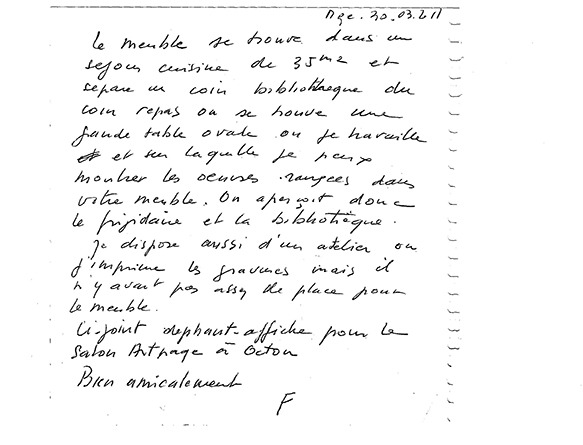 30.03.211
le meuble se trouve dans un
sejour cuisine de 35m2 et
separe un coin bibliothèque du
coin repas ou se trouve une
grande table ovale ou je travaille
et sur laquelle je peux
montrer les oeuvres rangees dans
votre meuble. On aperçoit donc
le frigidaire et la bibliothèque.
Je dispose aussi d'un atelier ou
j'imprime les gravures mais il
n'y avait pas assez de place pour
le meuble.
Ci-joint dephant-affiche pour le
Salon Artpage à Octon
Bien amicalement
F